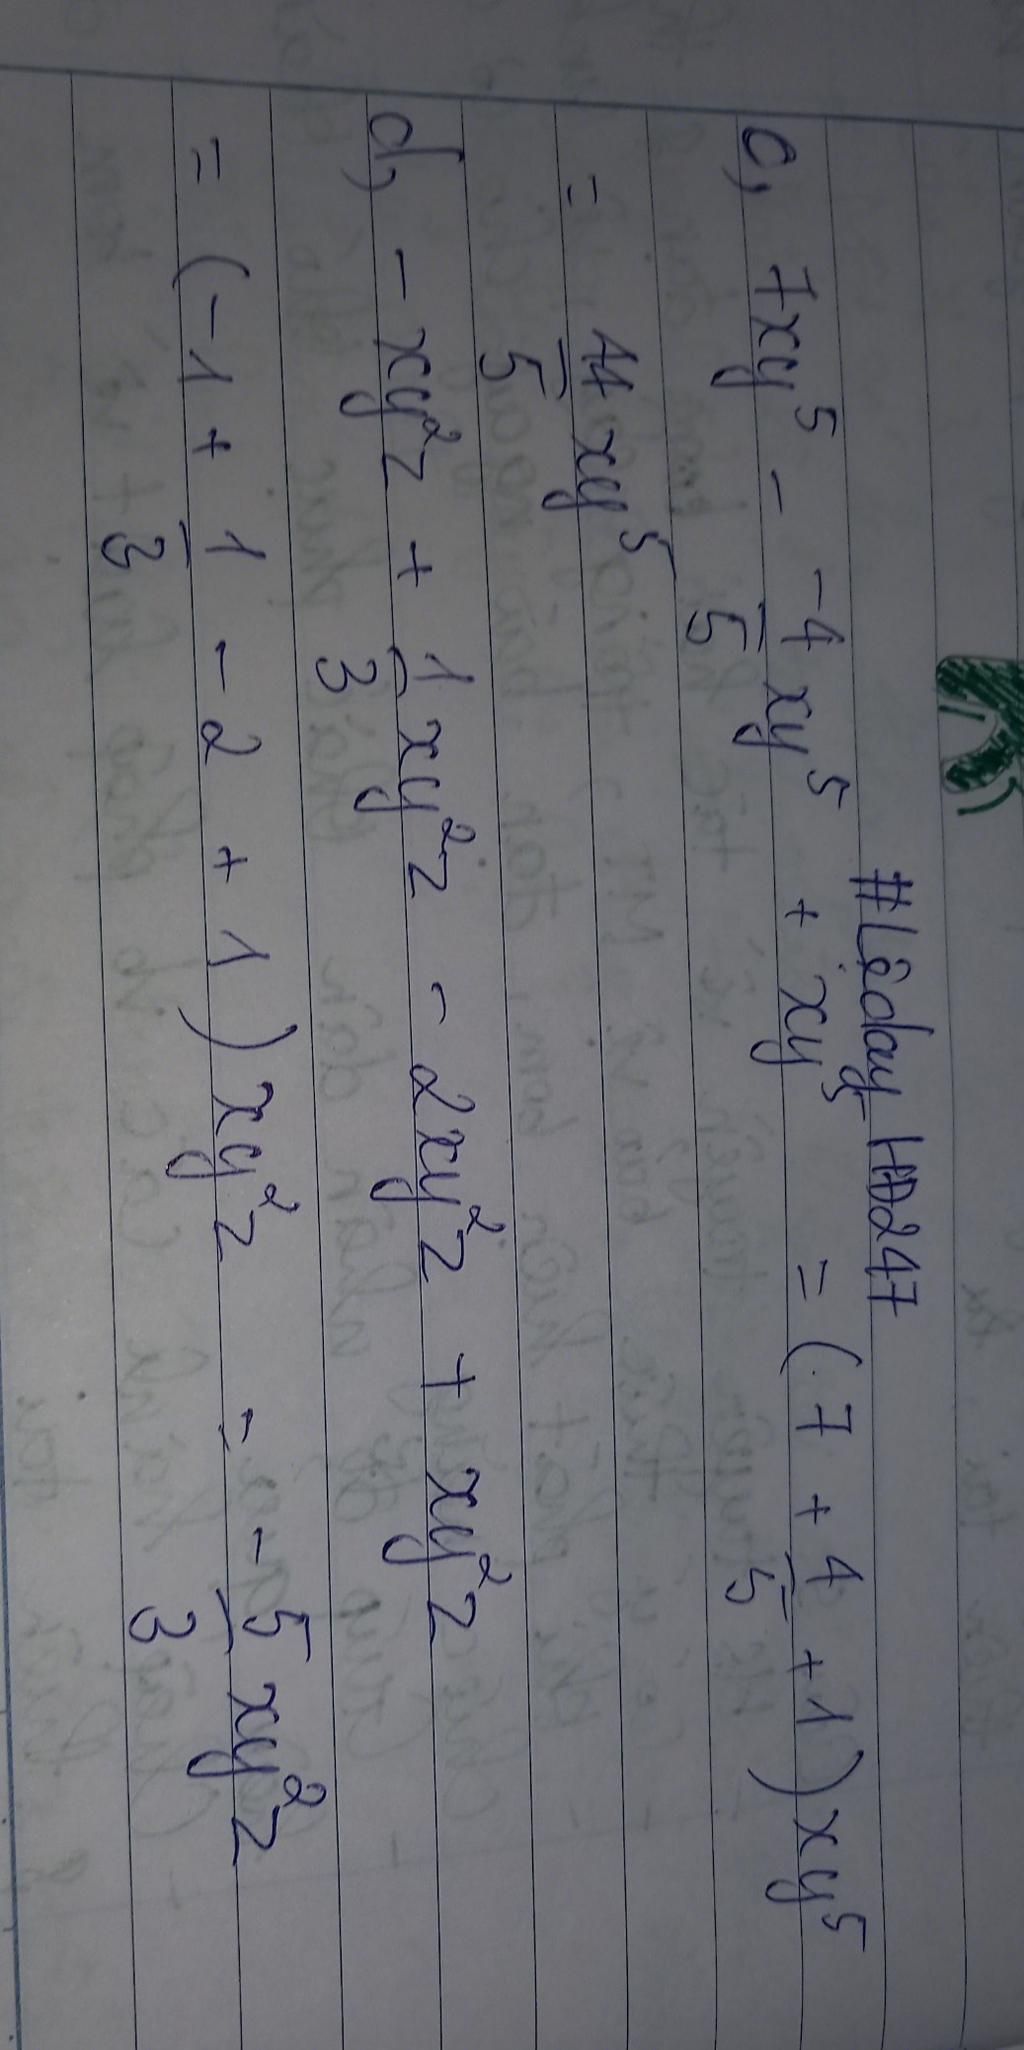 #Lêday_HD247
c, 7xy⁵ - -4/5 xy⁵ + xy⁵ = (7 + 4/5 + 1)xy⁵
= 44/5 xy⁵
d, - xy²z + 1/3 xy²z - 2xy²z + xy²z
= (-1 + 1/3 - 2 + 1)xy²z = - 5/3 xy²z